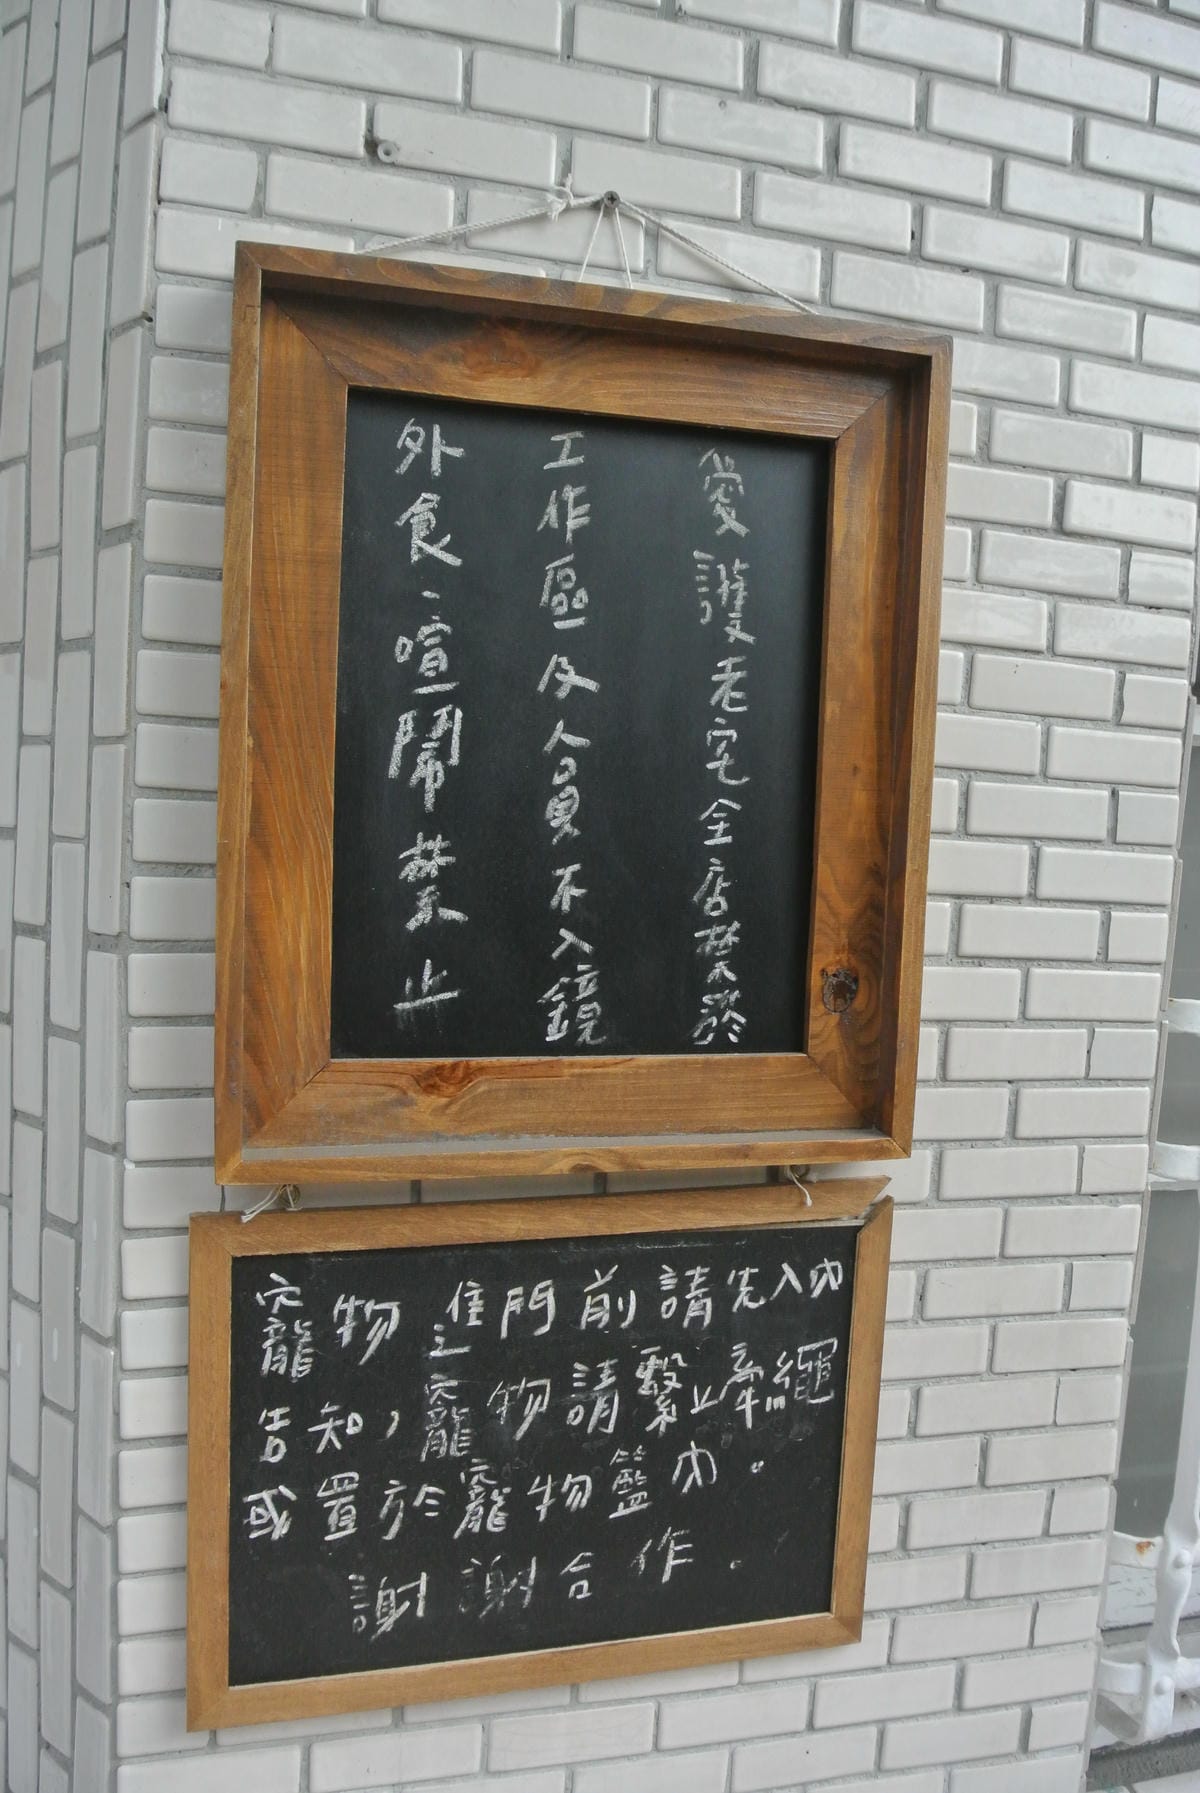 愛護老宅全店禁菸
工作區及人員不入鏡
外食、喧鬧禁止
寵物進門前請先入內
告知，寵物請繫上牽繩
或置於寵物籃內。
謝謝合作。